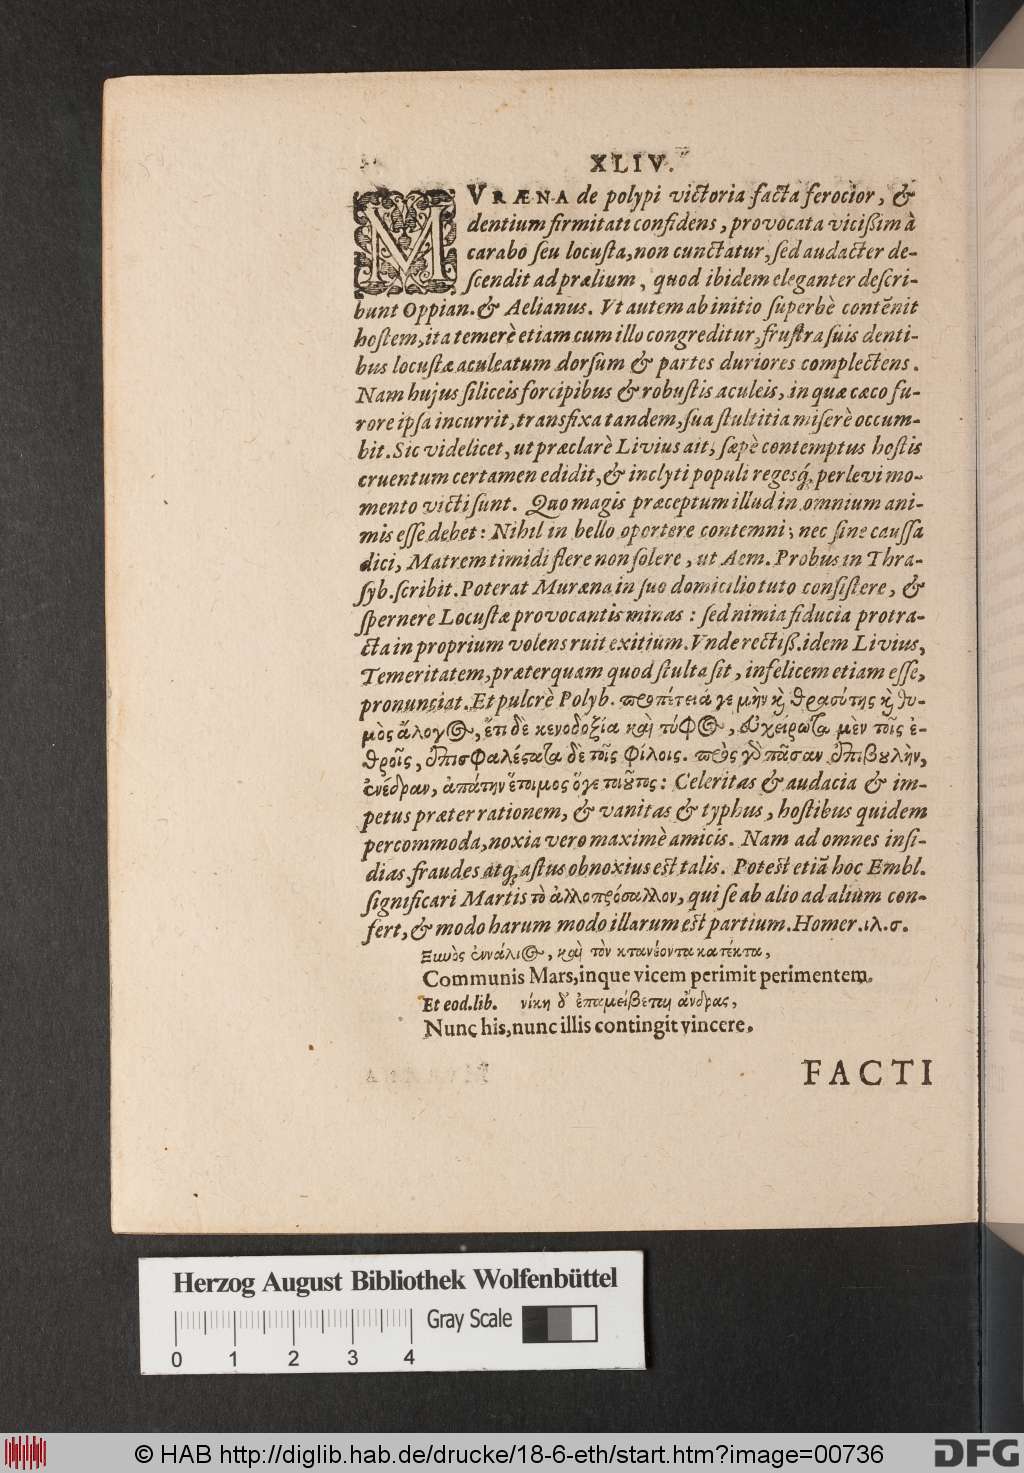 XLIV.
MURÆNA de polypi victoria facta ferocior, &
dentium firmitati confidens, provocata vicißim à
carabo seu locusta, non cunctatur, sed audacter de-
scendit ad prælium, quod ibidem eleganter descri-
bunt Oppian. & Aelianus. Vt autem ab initio superbè contēnit
hostem, ita temerè etiam cum illo congreditur, frustra suis denti-
bus locustæ aculeatum dorsum & partes duriores complectens.
Nam hujus siliceis forcipibus & robustis aculeis, in quæ cæco fu-
rore ipsa incurrit, transfixa tandem, sua stultitia miserè occum-
bit. Sic videlicet, ut præclarè Livius ait, sæpè contemptus hostis
cruentum certamen edidit, & inclyti populi regesq́; perlevi mo-
mento victi sunt. Quo magis præceptum illud in omnium ani-
mis esse debet: Nihil in bello oportere contemni; nec sine caussa
dici, Matrem timidi flere non solere, ut Aem. Probus in Thra-
syb. scribit. Poterat Muræna in suo domicilio tuto consistere, &
spernere Locustæ provocantis minas: sed nimia fiducia protra-
cta in proprium volens ruit exitium. Vnde rectiß. idem Livius,
Temeritatem, præterquam quod stulta sit, infelicem etiam esse,
pronunciat. Et pulcrè Polyb. προπέτειά γε μὴν κὶ θρασύτης κὶ θυ-
μὸς ἄλογος, ἔτι δὲ κενοδοξία καὶ τύφος, εὐχείρωτα μὲν τοῖς ἐ-
θροῖς, ἐπισφαλέςατα δὲ τοῖς φίλοις. πρὸς γδ πᾶσαν ἐπιβουλὴν,
ἐνέδραν, ἀπάτην ἕτοιμος ὅγε τοιοῦτος: Celeritas & audacia & im-
petus præter rationem, & vanitas & typhus, hostibus quidem
percommoda, noxia vero maximè amicis. Nam ad omnes insi-
dias, fraudes atq; astus obnoxius est talis. Potest etiā hoc Embl.
significari Martis τὸ ἀλλοπρόσαλλον, qui se ab alio ad alium con-
fert, & modo harum modo illarum est partium. Homer. ιλ. σ.
Ξυνὸς ἐννάλιος, καὶ τὸν κτανέοντα κατέκτα,
Communis Mars, inque vicem perimit perimentem.
Et eod. lib. νίκη δ' ἐπαμείβεται ἄνδρας,
Nunc his, nunc illis contingit vincere.
FACTI
Herzog August Bibliothek Wolfenbüttel
Gray Scale
0 1 2 3 4
© HAB http://diglib.hab.de/drucke/18-6-eth/start.htm?image=00736
DFG